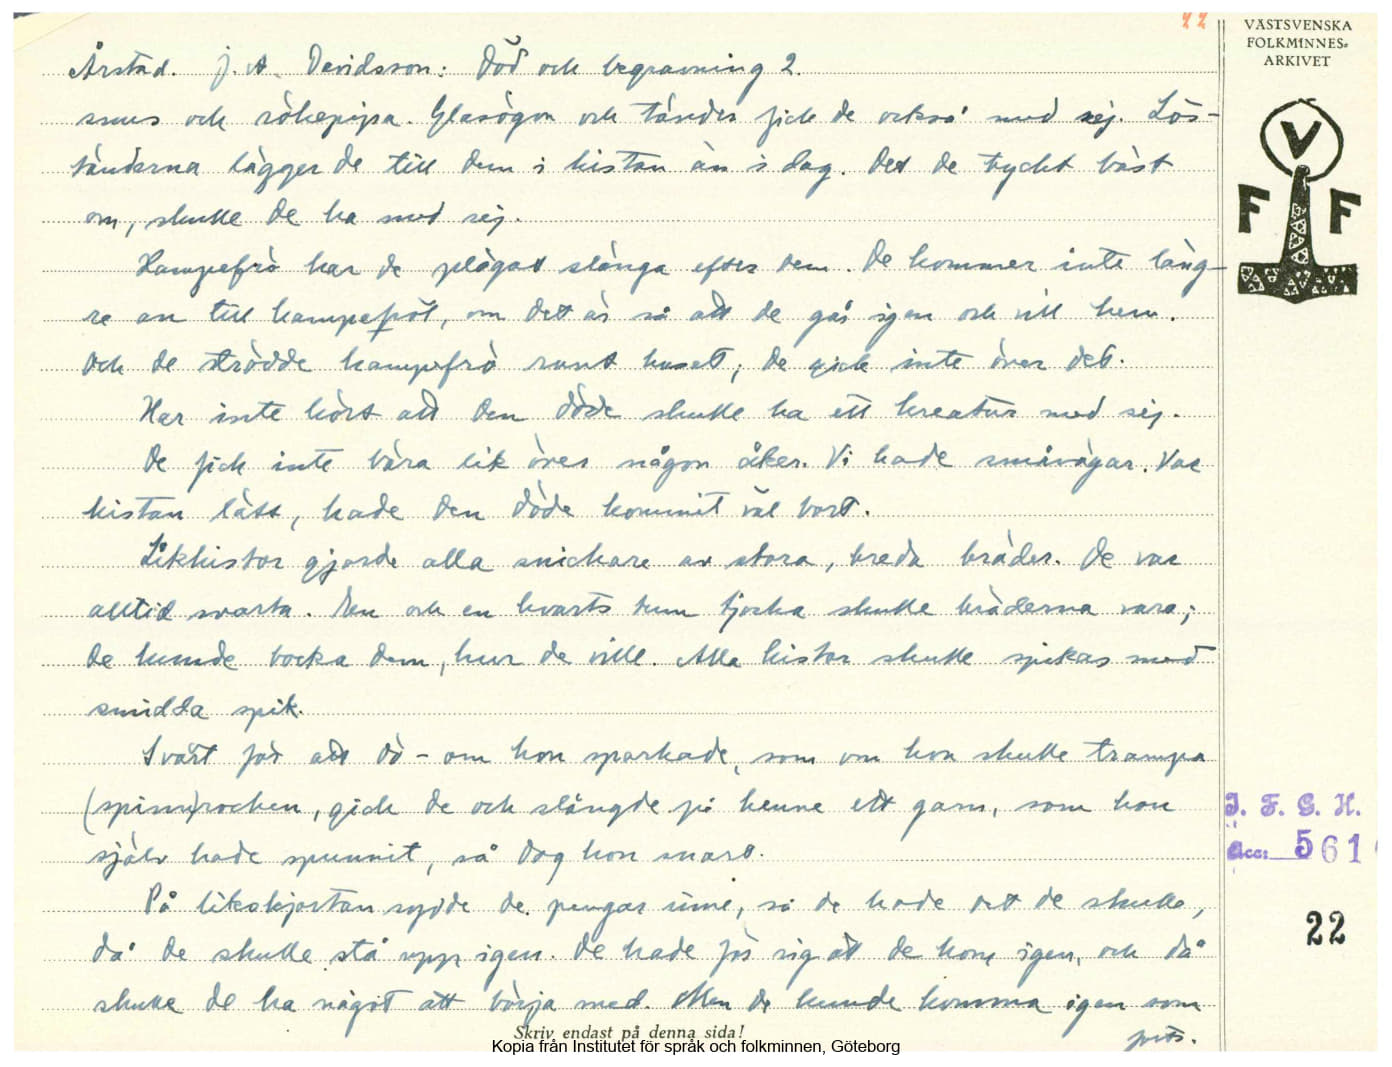 22
VÄSTSVENSKA
FOLKMINNES-
ARKIVET
V
F F
Årstad. J. A. Davidsson: Död och begravning 2.
snus och rökepipa. Glasögon och tänder fick de också med sej. Lös-
tänderna lägger de till dem i kistan än i dag. Det de tyckt bäst
om, skulle de ha med sej.
Hampefrö har de plägat slänga efter dem. De kommer inte läng-
re än till hampefröt, om det är så att de går igen och vill hem.
Och de strödde hampefrö runt huset; de gick inte över det.
Har inte hört att den döde skulle ha ett kreatur med sej.
De fick inte bära lik över någon åker. Vi hade småvägar. Var
kistan lätt, hade den döde kommit väl bort.
Likkistor gjorde alla snickare av stora, breda bräder. De var
alltid svarta. En och en kvarts tum tjocka skulle bräderna vara;
de kunde bocka dem, hur de ville. Alla kistor skulle spikas med
smidda spik.
Svårt för att dö – om hon sparkade, som om hon skulle trampa
(spinn)rocken, gick de och slängde på henne ett garn, som hon
själv hade spunnit, så dog hon snart.
På likskjortan sydde de pengar inne, så de hade det de skulle,
då de skulle stå upp igen. De hade för sig att de kom igen, och då
skulle de ha något att börja med. Men de kunde komma igen som
forts.
Skriv endast på denna sida!
I. F. G. H.
Acc: 561
22
Kopia från Institutet för språk och folkminnen, Göteborg